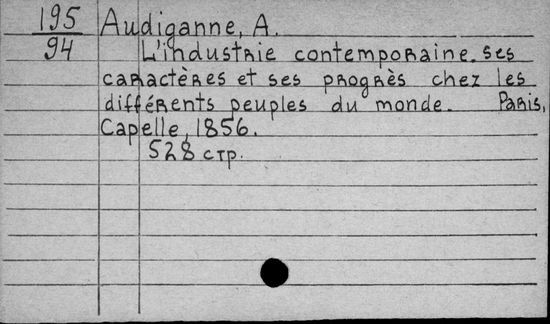 195 Audiganne, A.
94 L'industrie contemporaine. ses
caractères et ses progrès chez les
différents peuples du monde. Paris,
Capelle, 1856.
528 стр.